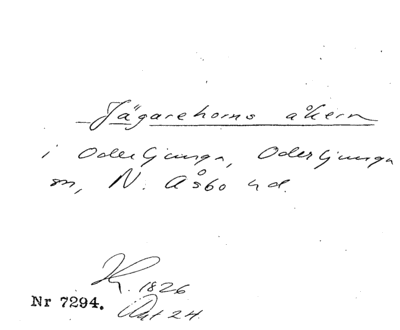 Jägarehorns åkern
i Oderljunga, Oderljunga
sn, N. Åsbo hd.
K. 1826
Akt 24
Nr 7294.